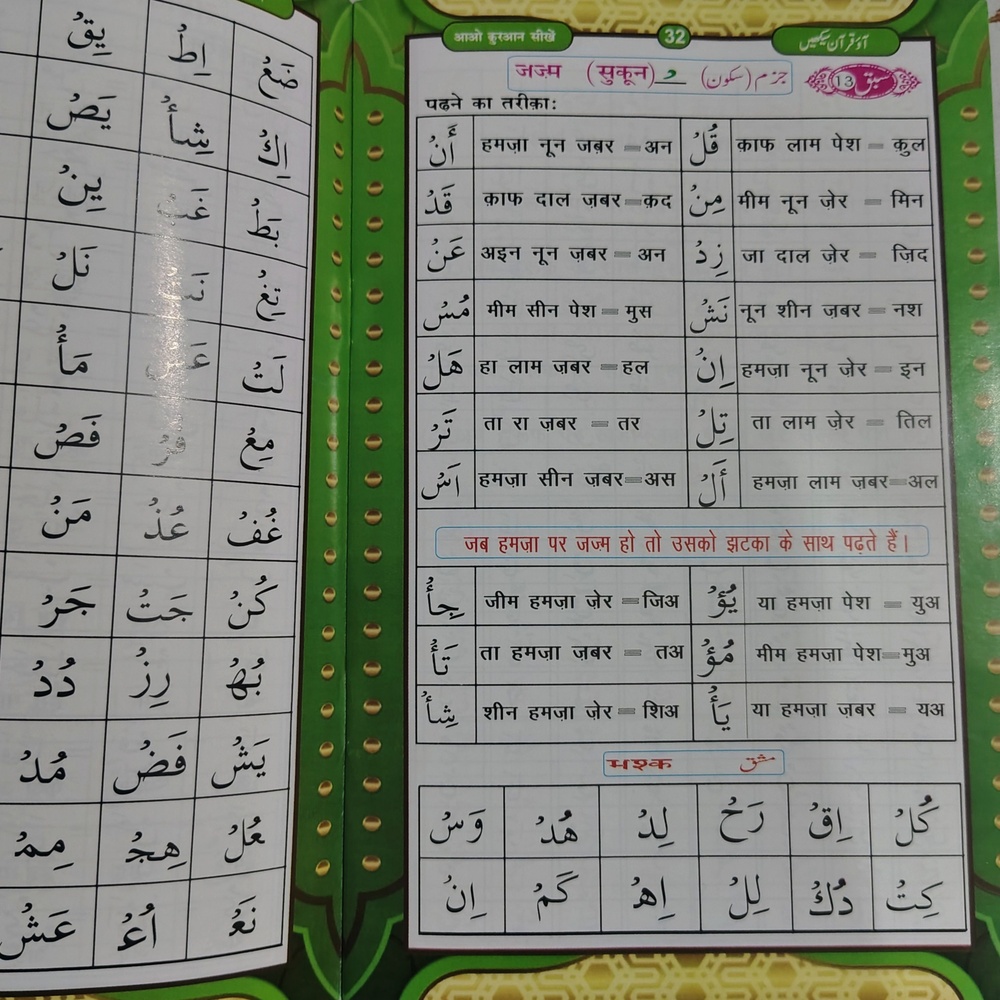 आओ क़ुरआन सीखें 32 آؤ قرآن سیکھیں
जज्म (सुकून) جزم (سکون) سبق 13
पढने का तरीक़ा:
أَنْ हमज़ा नून ज़बर = अन قُلْ क़ाफ लाम पेश = कुल
قَدْ क़ाफ दाल ज़बर = क़द مِنْ मीम नून ज़ेर = मिन
عَنْ अइन नून ज़बर = अन زِدْ जा दाल ज़ेर = ज़िद
مُسْ मीम सीन पेश = मुस نَشْ नून शीन ज़बर = नश
هَلْ हा लाम ज़बर = हल اِنْ हमज़ा नून ज़ेर = इन
تَرْ ता रा ज़बर = तर تِلْ ता लाम ज़ेर = तिल
اَسْ हमज़ा सीन ज़बर = अस أَلْ हमज़ा लाम ज़बर = अल
जब हमज़ा पर जज्म हो तो उसको झटका के साथ पढ़ते हैं।
جِأْ जीम हमज़ा ज़ेर = जिअ يُؤْ या हमज़ा पेश = युअ
تَأْ ता हमज़ा ज़बर = तअ مُؤْ मीम हमज़ा पेश = मुअ
شِأْ शीन हमज़ा ज़ेर = शिअ يَأْ या हमज़ा ज़बर = यअ
मश्क مشق
كُلْ اِقْ رَحْ لِدْ هُدْ وَسْ
كِتْ دُكْ لِلْ اِهْ كَمْ اِنْ
ضَعْ اِطْ يِقْ
اِكْ شِأْ يَصْ
بَطْ يِنْ
تِغْ نَلْ
لَتْ مَأْ
مِعْ فَصْ
غُفْ عُذْ مَنْ
كُنْ جَتْ جَرْ
بُهْ رِزْ دُدْ
يَشْ فَضْ مُدْ
عُلْ هِجْ مِمْ
نَعْ اُعْ عَشْ